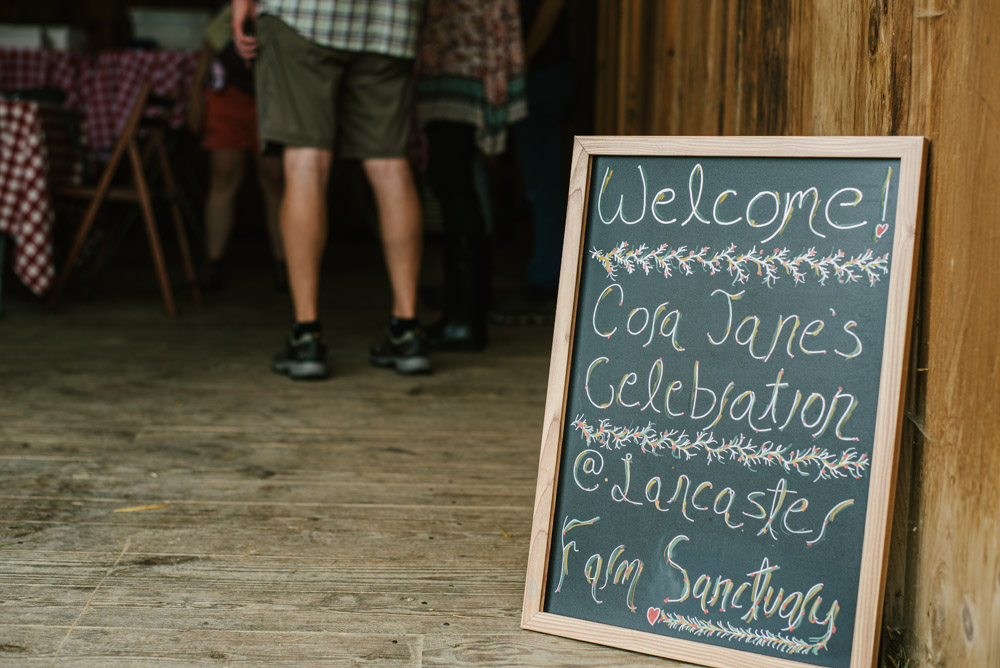 Welcome!
Cora Jane's
Celebration
@ Lancaster
Farm Sanctuary